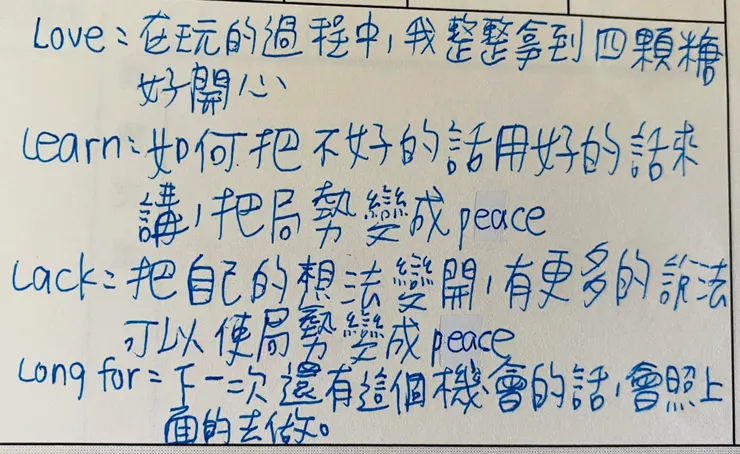 Love：在玩的過程中，我整整拿到四顆糖
好開心
Learn：如何把不好的話用好的話來
講，把局勢變成peace
Lack：把自己的想法變開，有更多的說法
可以使局勢變成peace
Long for：下一次還有這個機會的話，會照上
面的去做。